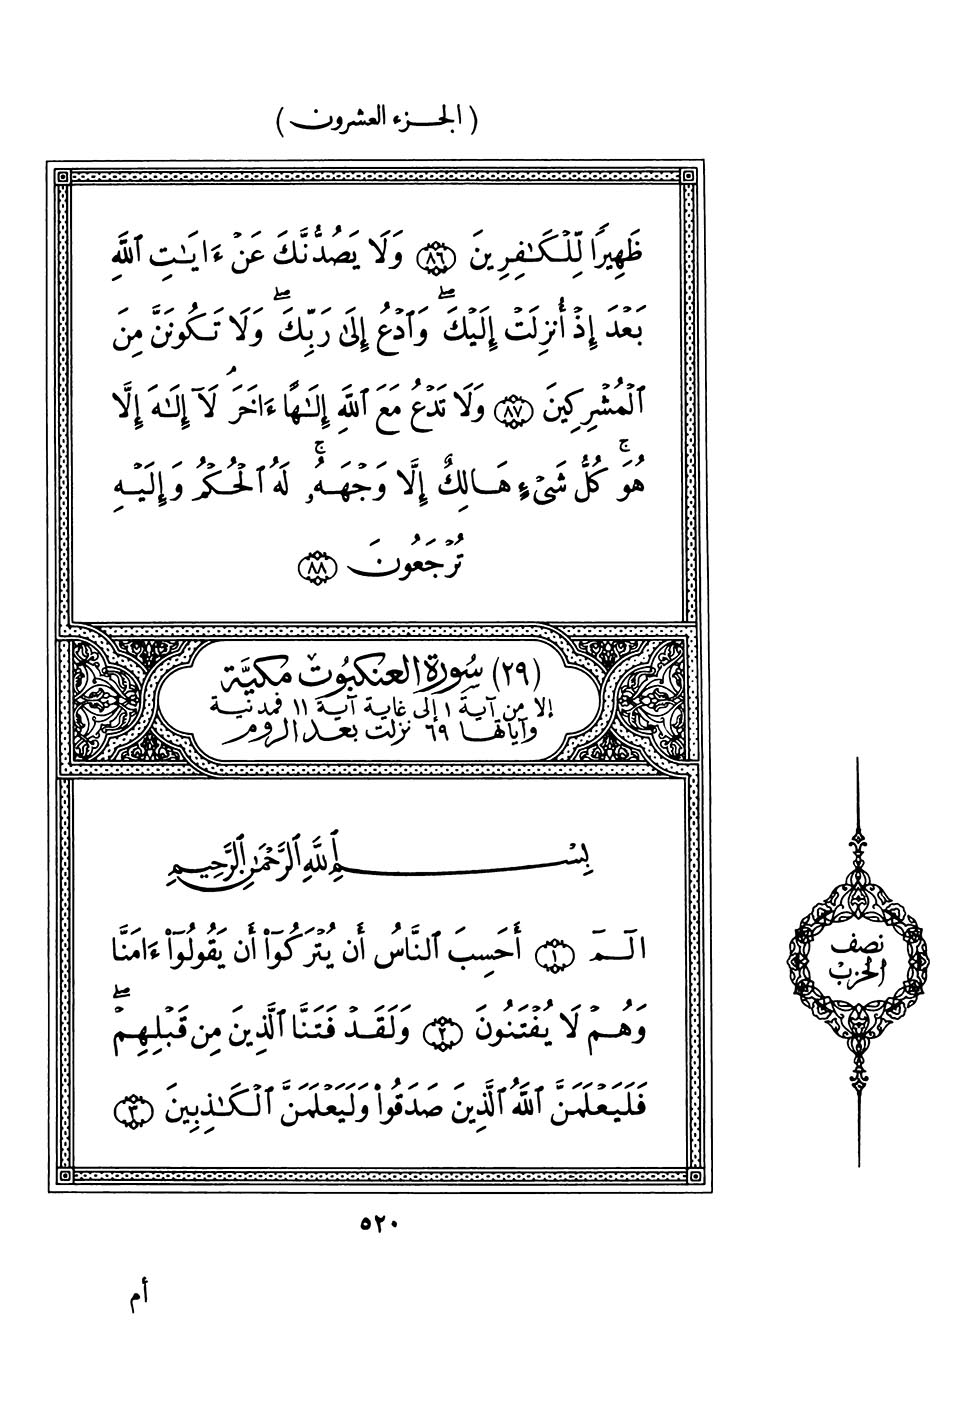 ( الجزء العشرون )
ظَهِيرًا لِّلْكَـٰفِرِينَ ۝٨٦ وَلَا يَصُدُّنَّكَ عَنْ ءَايَـٰتِ ٱللَّهِ
بَعْدَ إِذْ أُنزِلَتْ إِلَيْكَ ۖ وَٱدْعُ إِلَىٰ رَبِّكَ ۖ وَلَا تَكُونَنَّ مِنَ
ٱلْمُشْرِكِينَ ۝٨٧ وَلَا تَدْعُ مَعَ ٱللَّهِ إِلَـٰهًا ءَاخَرَ ۘ لَآ إِلَـٰهَ إِلَّا
هُوَ ۚ كُلُّ شَىْءٍ هَالِكٌ إِلَّا وَجْهَهُۥ ۚ لَهُ ٱلْحُكْمُ وَإِلَيْهِ
تُرْجَعُونَ ۝٨٨
(٢٩) سُورَة العنكبُوت مكيَّة
إلا من آية ١ إلى غاية آية ١١ فمدنية
وآياتها ٦٩ نزلت بعد الروم
بِسْمِ ٱللَّهِ ٱلرَّحْمَـٰنِ ٱلرَّحِيمِ
الٓمٓ ۝١ أَحَسِبَ ٱلنَّاسُ أَن يُتْرَكُوٓا۟ أَن يَقُولُوٓا۟ ءَامَنَّا
وَهُمْ لَا يُفْتَنُونَ ۝٢ وَلَقَدْ فَتَنَّا ٱلَّذِينَ مِن قَبْلِهِمْ ۖ
فَلَيَعْلَمَنَّ ٱللَّهُ ٱلَّذِينَ صَدَقُوا۟ وَلَيَعْلَمَنَّ ٱلْكَـٰذِبِينَ ۝٣
نصف
الحزب
٥٢٠
أم